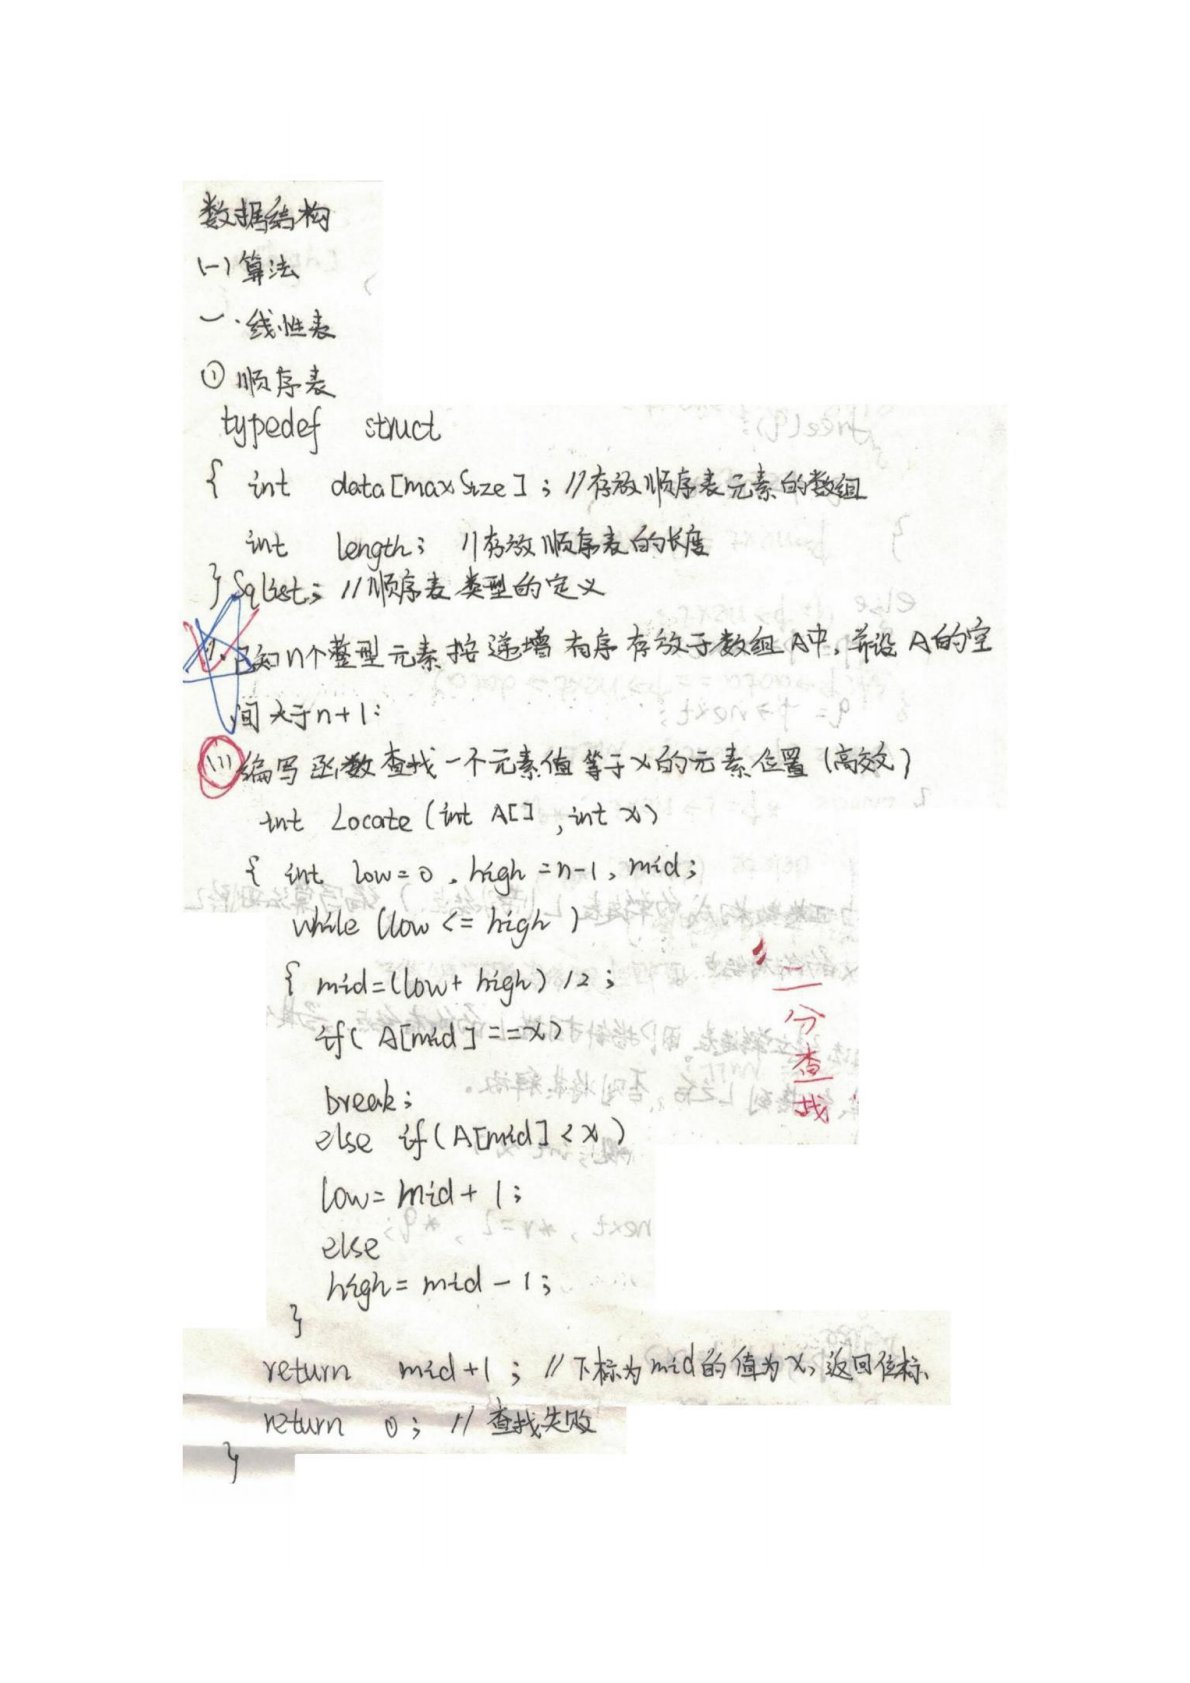 数据结构
(一)算法
一.线性表
① 顺序表
typedef struct
{ int data[maxSize]; //存放顺序表元素的数组
int length; //存放顺序表的长度
} Sqlist; //顺序表类型的定义
1.已知n个整型元素按递增有序存放于数组A中,并设A的空
间大于n+1:
(1)编写函数查找一个元素值等于x的元素位置(高效)
int Locate (int A[], int x)
{ int low=0, high=n-1, mid;
while (low <= high)
{ mid=(low+high)/2;
if( A[mid]==x)
break;
else if(A[mid]<x)
low=mid+1;
else
high=mid-1;
}
return mid+1; //下标为mid的值为x,返回位标
return 0; //查找失败
}
二分查找